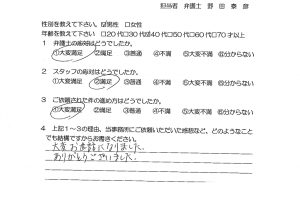 担当者 弁護士 野田泰彦
性別を教えて下さい。☑男性 □女性
年齢を教えて下さい □20代□30代☑40代□50代□60代□70才以上
1 弁護士の応対はどうでしたか。
①大変満足 ②満足 ③普通 ④不満 ⑤大変不満 ⑥分からない
2 スタッフの応対はどうでしたか。
①大変満足 ②満足 ③普通 ④不満 ⑤大変不満 ⑥分からない
3 ご依頼された件の進め方はどうでしたか。
①大変満足 ②満足 ③普通 ④不満 ⑤大変不満 ⑥分からない
4 上記1～3の理由、当事務所にご依頼いただいた感想など、どのようなこと
でも結構ですからお書きください。
大変お世話になりました。
ありがとうございました。